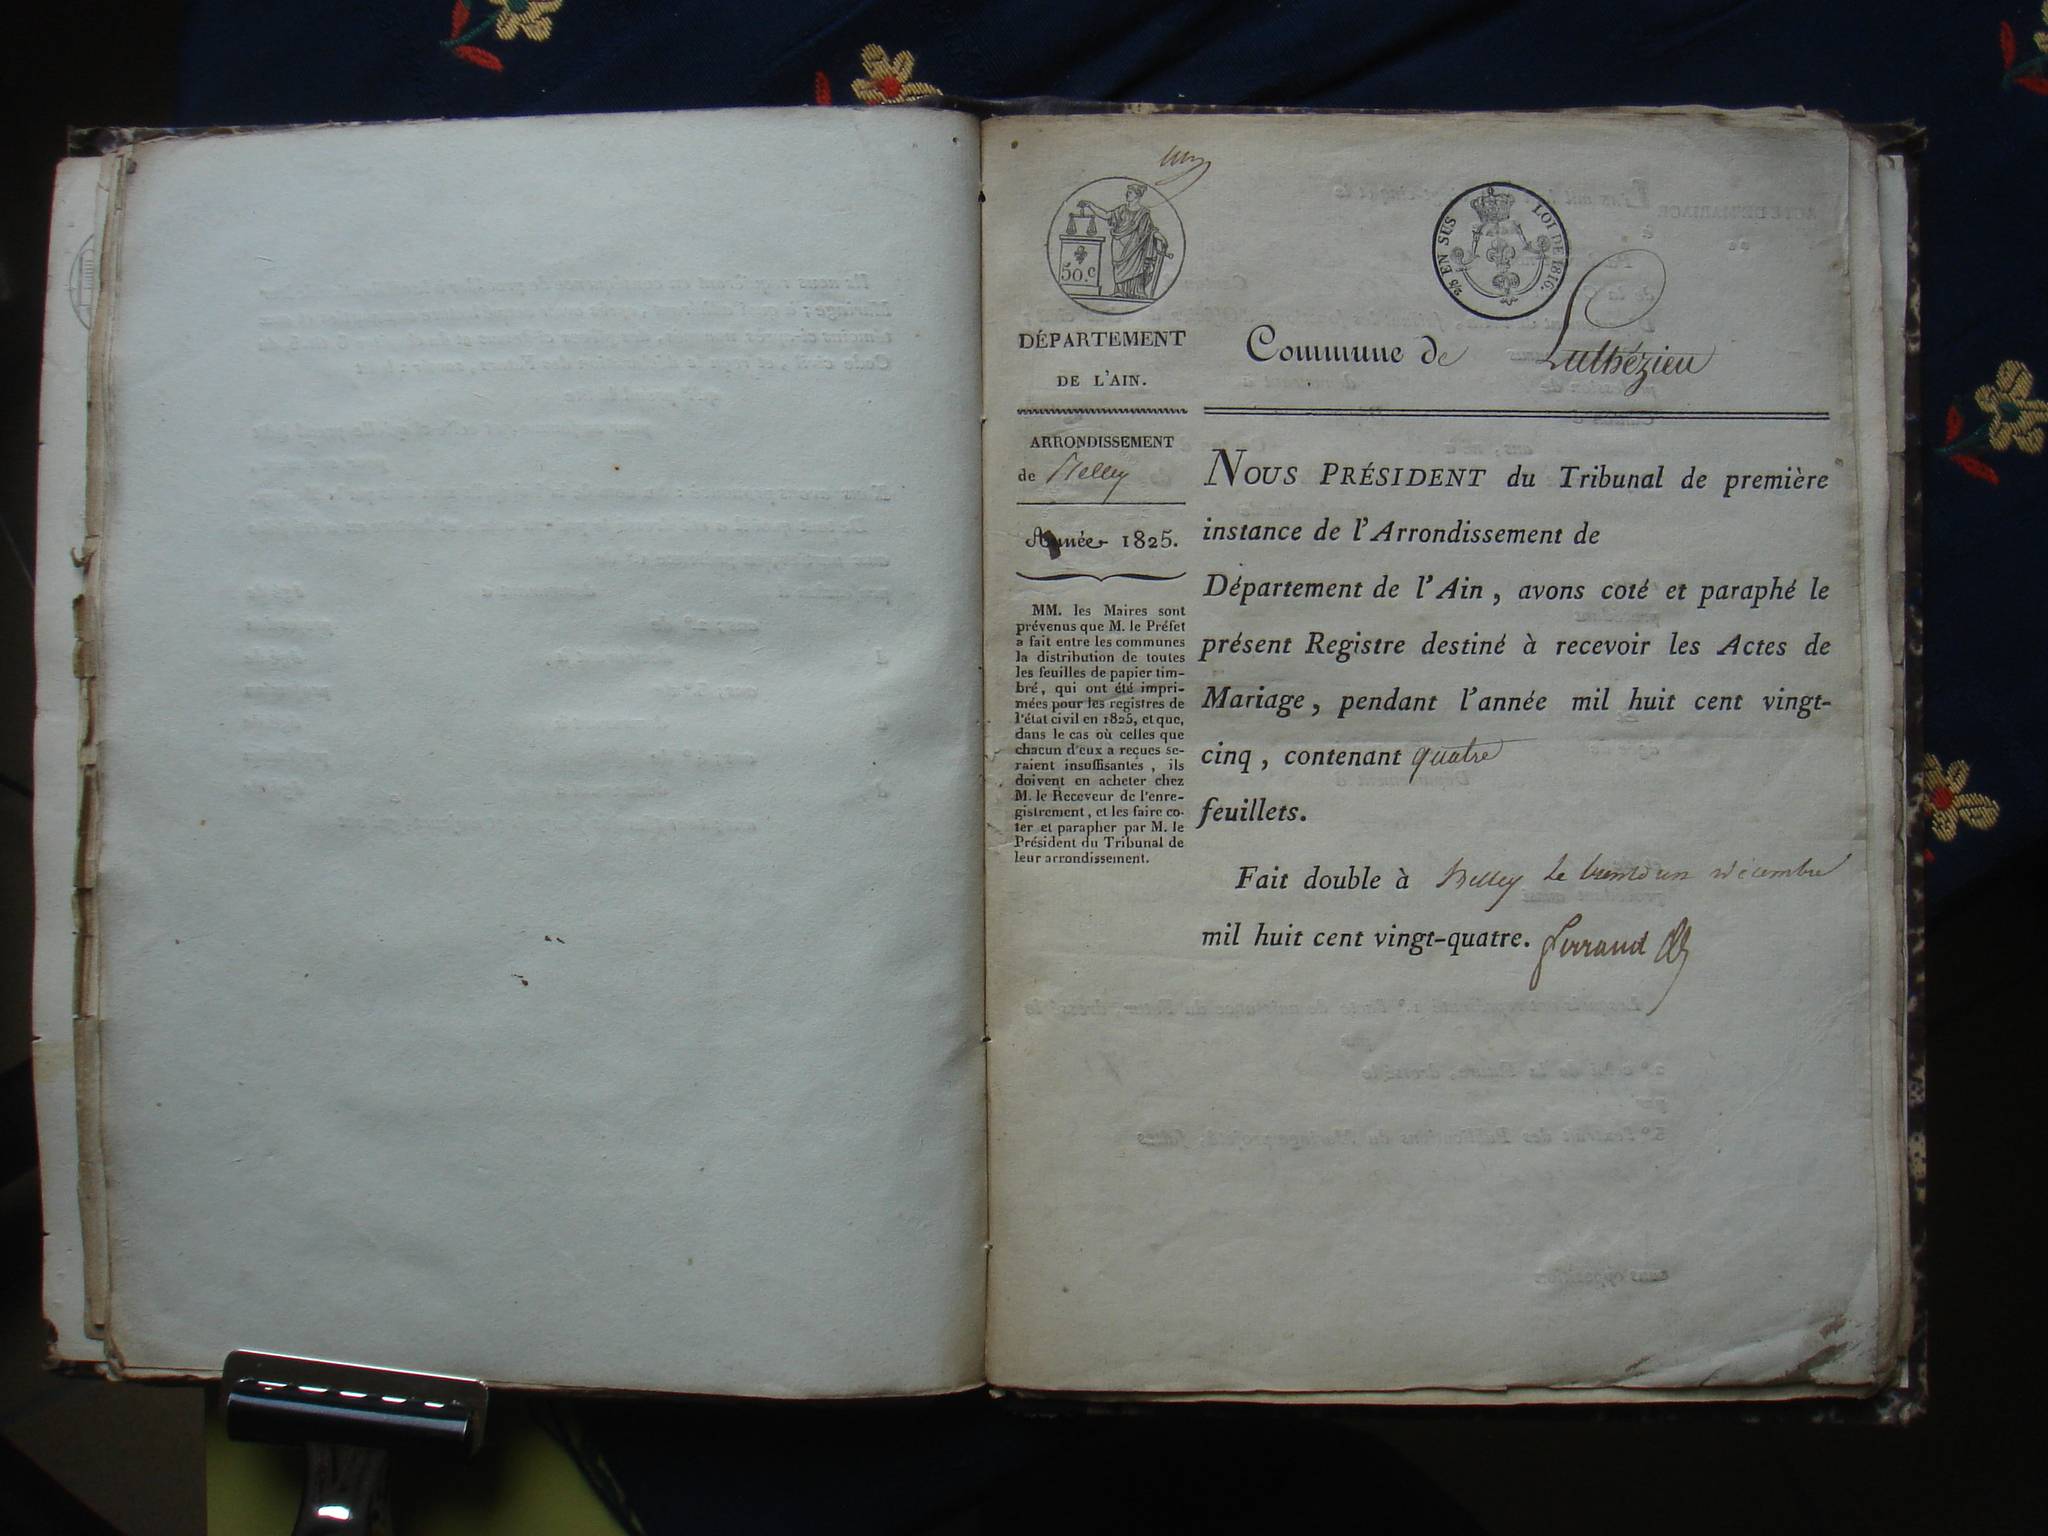 50.c
2/5 EN SUS LOI DE 1816.
DÉPARTEMENT
DE L'AIN.
Commune de Luthézieu
ARRONDISSEMENT
de Belley
Année 1825.
MM. les Maires sont
prévenus que M. le Préfet
a fait entre les communes
la distribution de toutes
les feuilles de papier tim-
bré, qui ont été impri-
mées pour les registres de
l'état civil en 1825, et que,
dans le cas où celles que
chacun d'eux a reçues se-
raient insuffisantes, ils
doivent en acheter chez
M. le Receveur de l'enre-
gistrement, et les faire co-
ter et parapher par M. le
Président du Tribunal de
leur arrondissement.
NOUS PRÉSIDENT du Tribunal de première
instance de l'Arrondissement de
Département de l'Ain, avons coté et paraphé le
présent Registre destiné à recevoir les Actes de
Mariage, pendant l'année mil huit cent vingt-
cinq, contenant quatre
feuillets.
Fait double à Belley le décembre
mil huit cent vingt-quatre. Ferrand